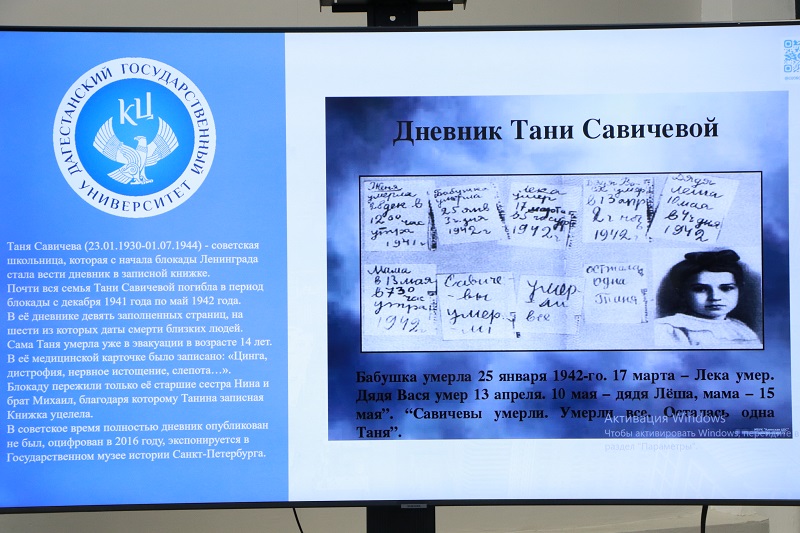 ДАГЕСТАНСКИЙ ГОСУДАРСТВЕННЫЙ УНИВЕРСИТЕТ
КЦ
Таня Савичева (23.01.1930-01.07.1944) - советская
школьница, которая с начала блокады Ленинграда
стала вести дневник в записной книжке.
Почти вся семья Тани Савичевой погибла в период
блокады с декабря 1941 года по май 1942 года.
В её дневнике девять заполненных страниц, на
шести из которых даты смерти близких людей.
Сама Таня умерла уже в эвакуации в возрасте 14 лет.
В её медицинской карточке было записано: «Цинга,
дистрофия, нервное истощение, слепота…».
Блокаду пережили только её старшие сестра Нина и
брат Михаил, благодаря которому Танина записная
Книжка уцелела.
В советское время полностью дневник опубликован
не был, оцифрован в 2016 году, экспонируется в
Государственном музее истории Санкт-Петербурга.
Дневник Тани Савичевой
Женя
умерла
в
12 00 час
утра
1941 г
Бабушка
умерла
25 янв
3 ч дня
1942 г
Лека
умер
17 марта
1942 г
умер
в 13 апр
2 ч ноч
1942 г
Дядя
Леша
10 мая
в 4 ч дня
1942
Мама
в 13 мая
в 7 30
час
утра
1942 г
Савиче
-вы
умер
ли
умер-
ли
все
Осталась
одна
Таня
Бабушка умерла 25 января 1942-го. 17 марта – Лека умер.
Дядя Вася умер 13 апреля. 10 мая – дядя Лёша, мама – 15
мая”. “Савичевы умерли. Умерли все. Осталась одна
Таня”.
Активация Windows
Чтобы активировать Windows, перейдите в
раздел "Параметры".